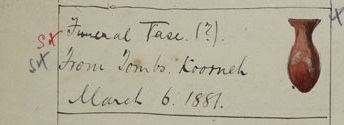 SX Funeral Vase. (?).
SX From Tombs. Koorneh
March 6. 1881.